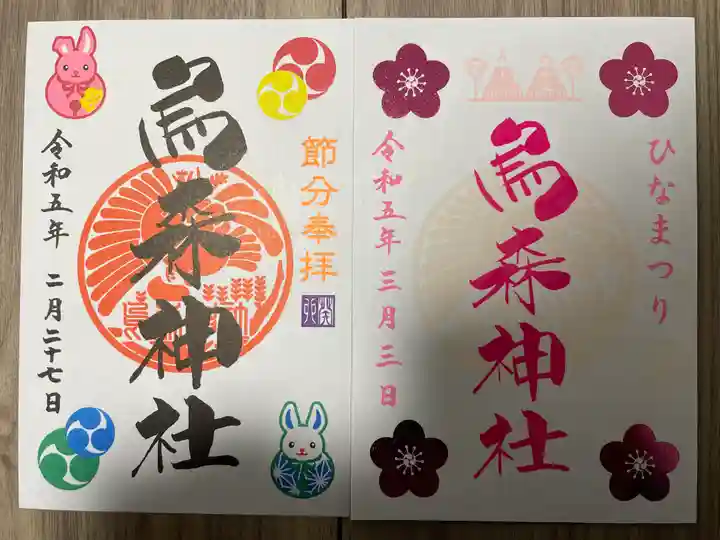 節分奉拝
烏森神社
令和五年 二月二十七日
ひなまつり
烏森神社
令和五年三月三日